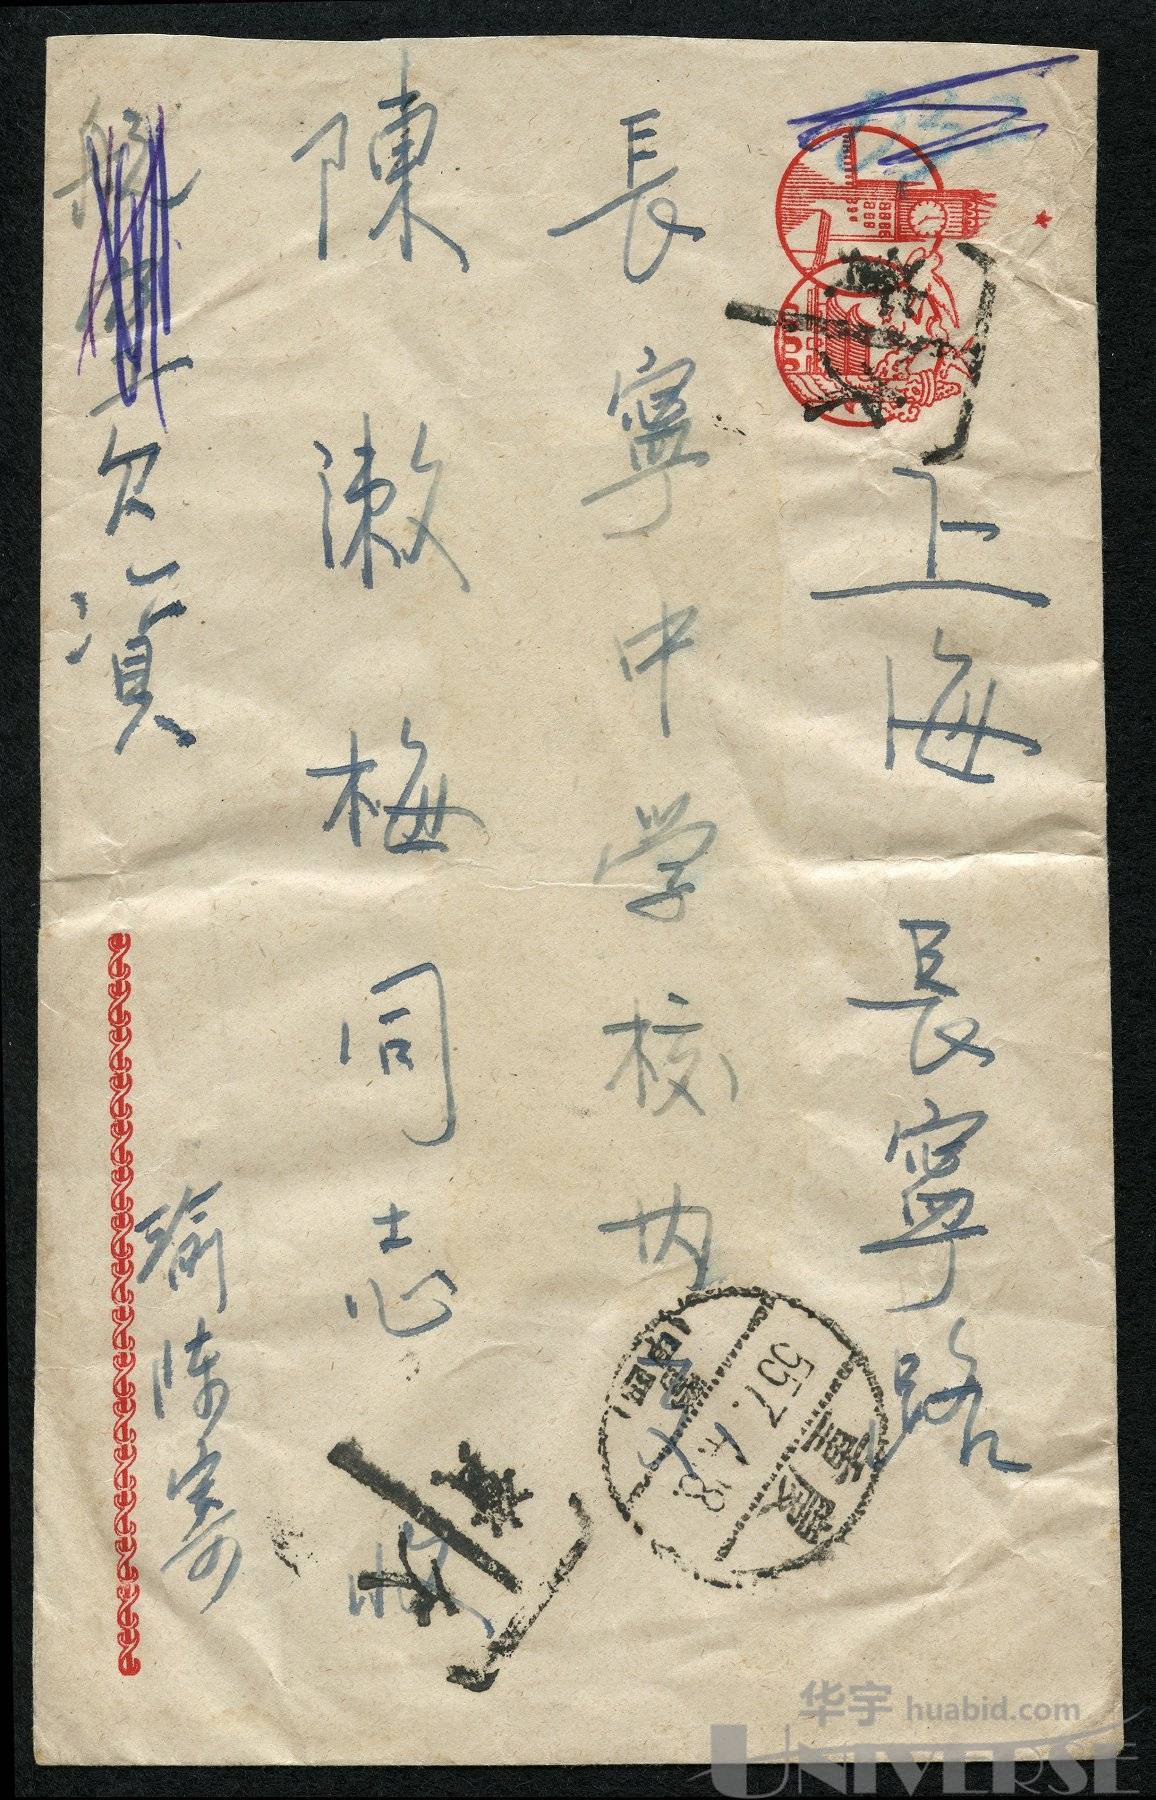 上海長寧路
長寧中学校内
陳漱梅同志收
欠資
瑜陳寄
55.7.
18
華宇 huabid.com
UNIVERSE